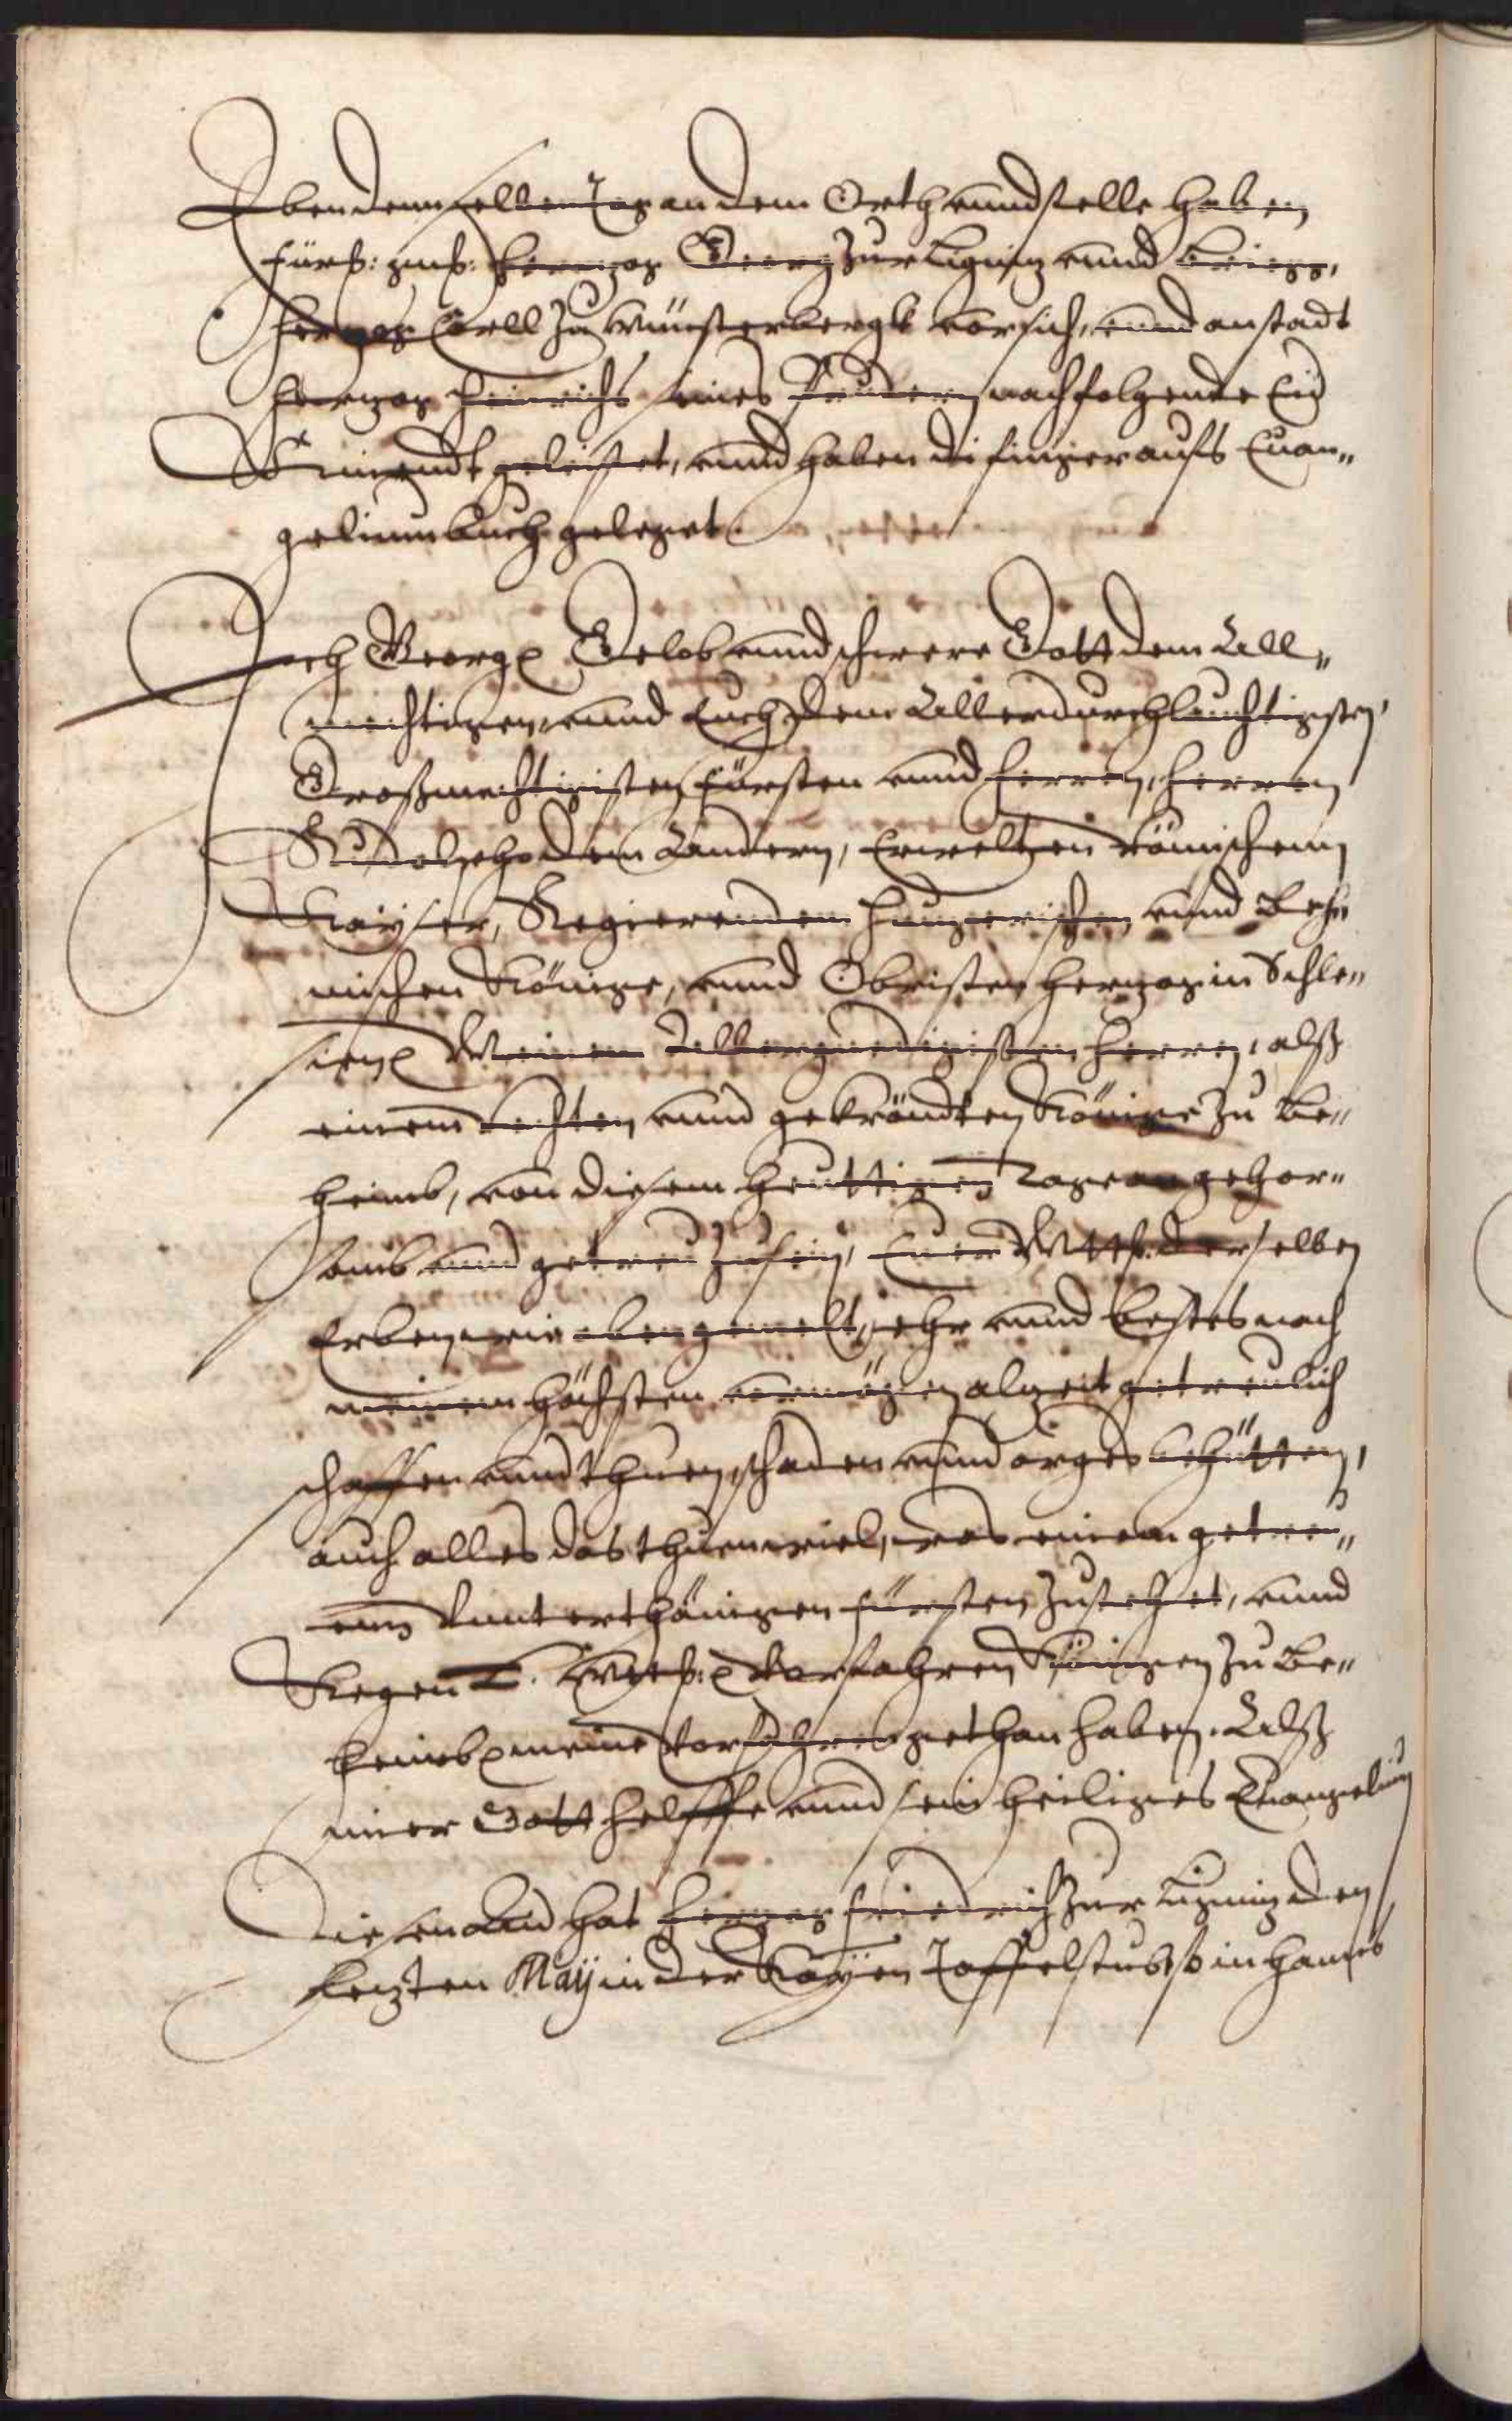 Eben demselben Tag an dem Orth vnnd stelle haben
fürst: gnd: Herzog Georg zur Ligniz vnnd Briegg,
Herzog Carll zu Münsterbergk vor sich, vnnd anstadt
Herzog Heinrichs seines Brudern nachfolgende Eid
geleistet, vnnd haben di finger aufs Euan„
geliumbuch geleget.
Ich Georg Gelob vnnd schwere Gott dem All„
mechtigen, vnnd Euch dem Allerdurchleuchtigsten,
Großmechtigisten Fürsten vnnd Herren, Herren
Rudolpho dem Andern, Erwelten Römischenn
Kayser, Regierendem Hungerischen vnnd Behe
mischen Könige, vnnd Obristen Herzog in Schle„
sien Meinem Allergnedigisten Herren, alß
einem rechten vnnd gekröndten Könige zu Be„
heimb, von diesem heuttigen Tage an gehor„
samb vnnd getreu zu sein, Euer Mtt: derselben
Erben, wie oben gemelt, ehr vnnd bestes nach
meinem höchsten vermögen alzeit getreulich
schaffen vnnd thuen, schaden vnnd arges behütten,
auch alles das thuen wiel, was einem getreu„
enn Vnnterthänigen Fürsten zustehet, vnnd
Kegen E. Mtt: Vorfahren Königen zu Be„
heimb meine Vorfahren gethan haben. Alß
mier Gott helffe vnnd sein heiliges Euangelium
Diesen Aid hat Herzog Friedrich zur Ligniz den
lezten Maÿ in der Kaÿen Taffelstube so in Hannß